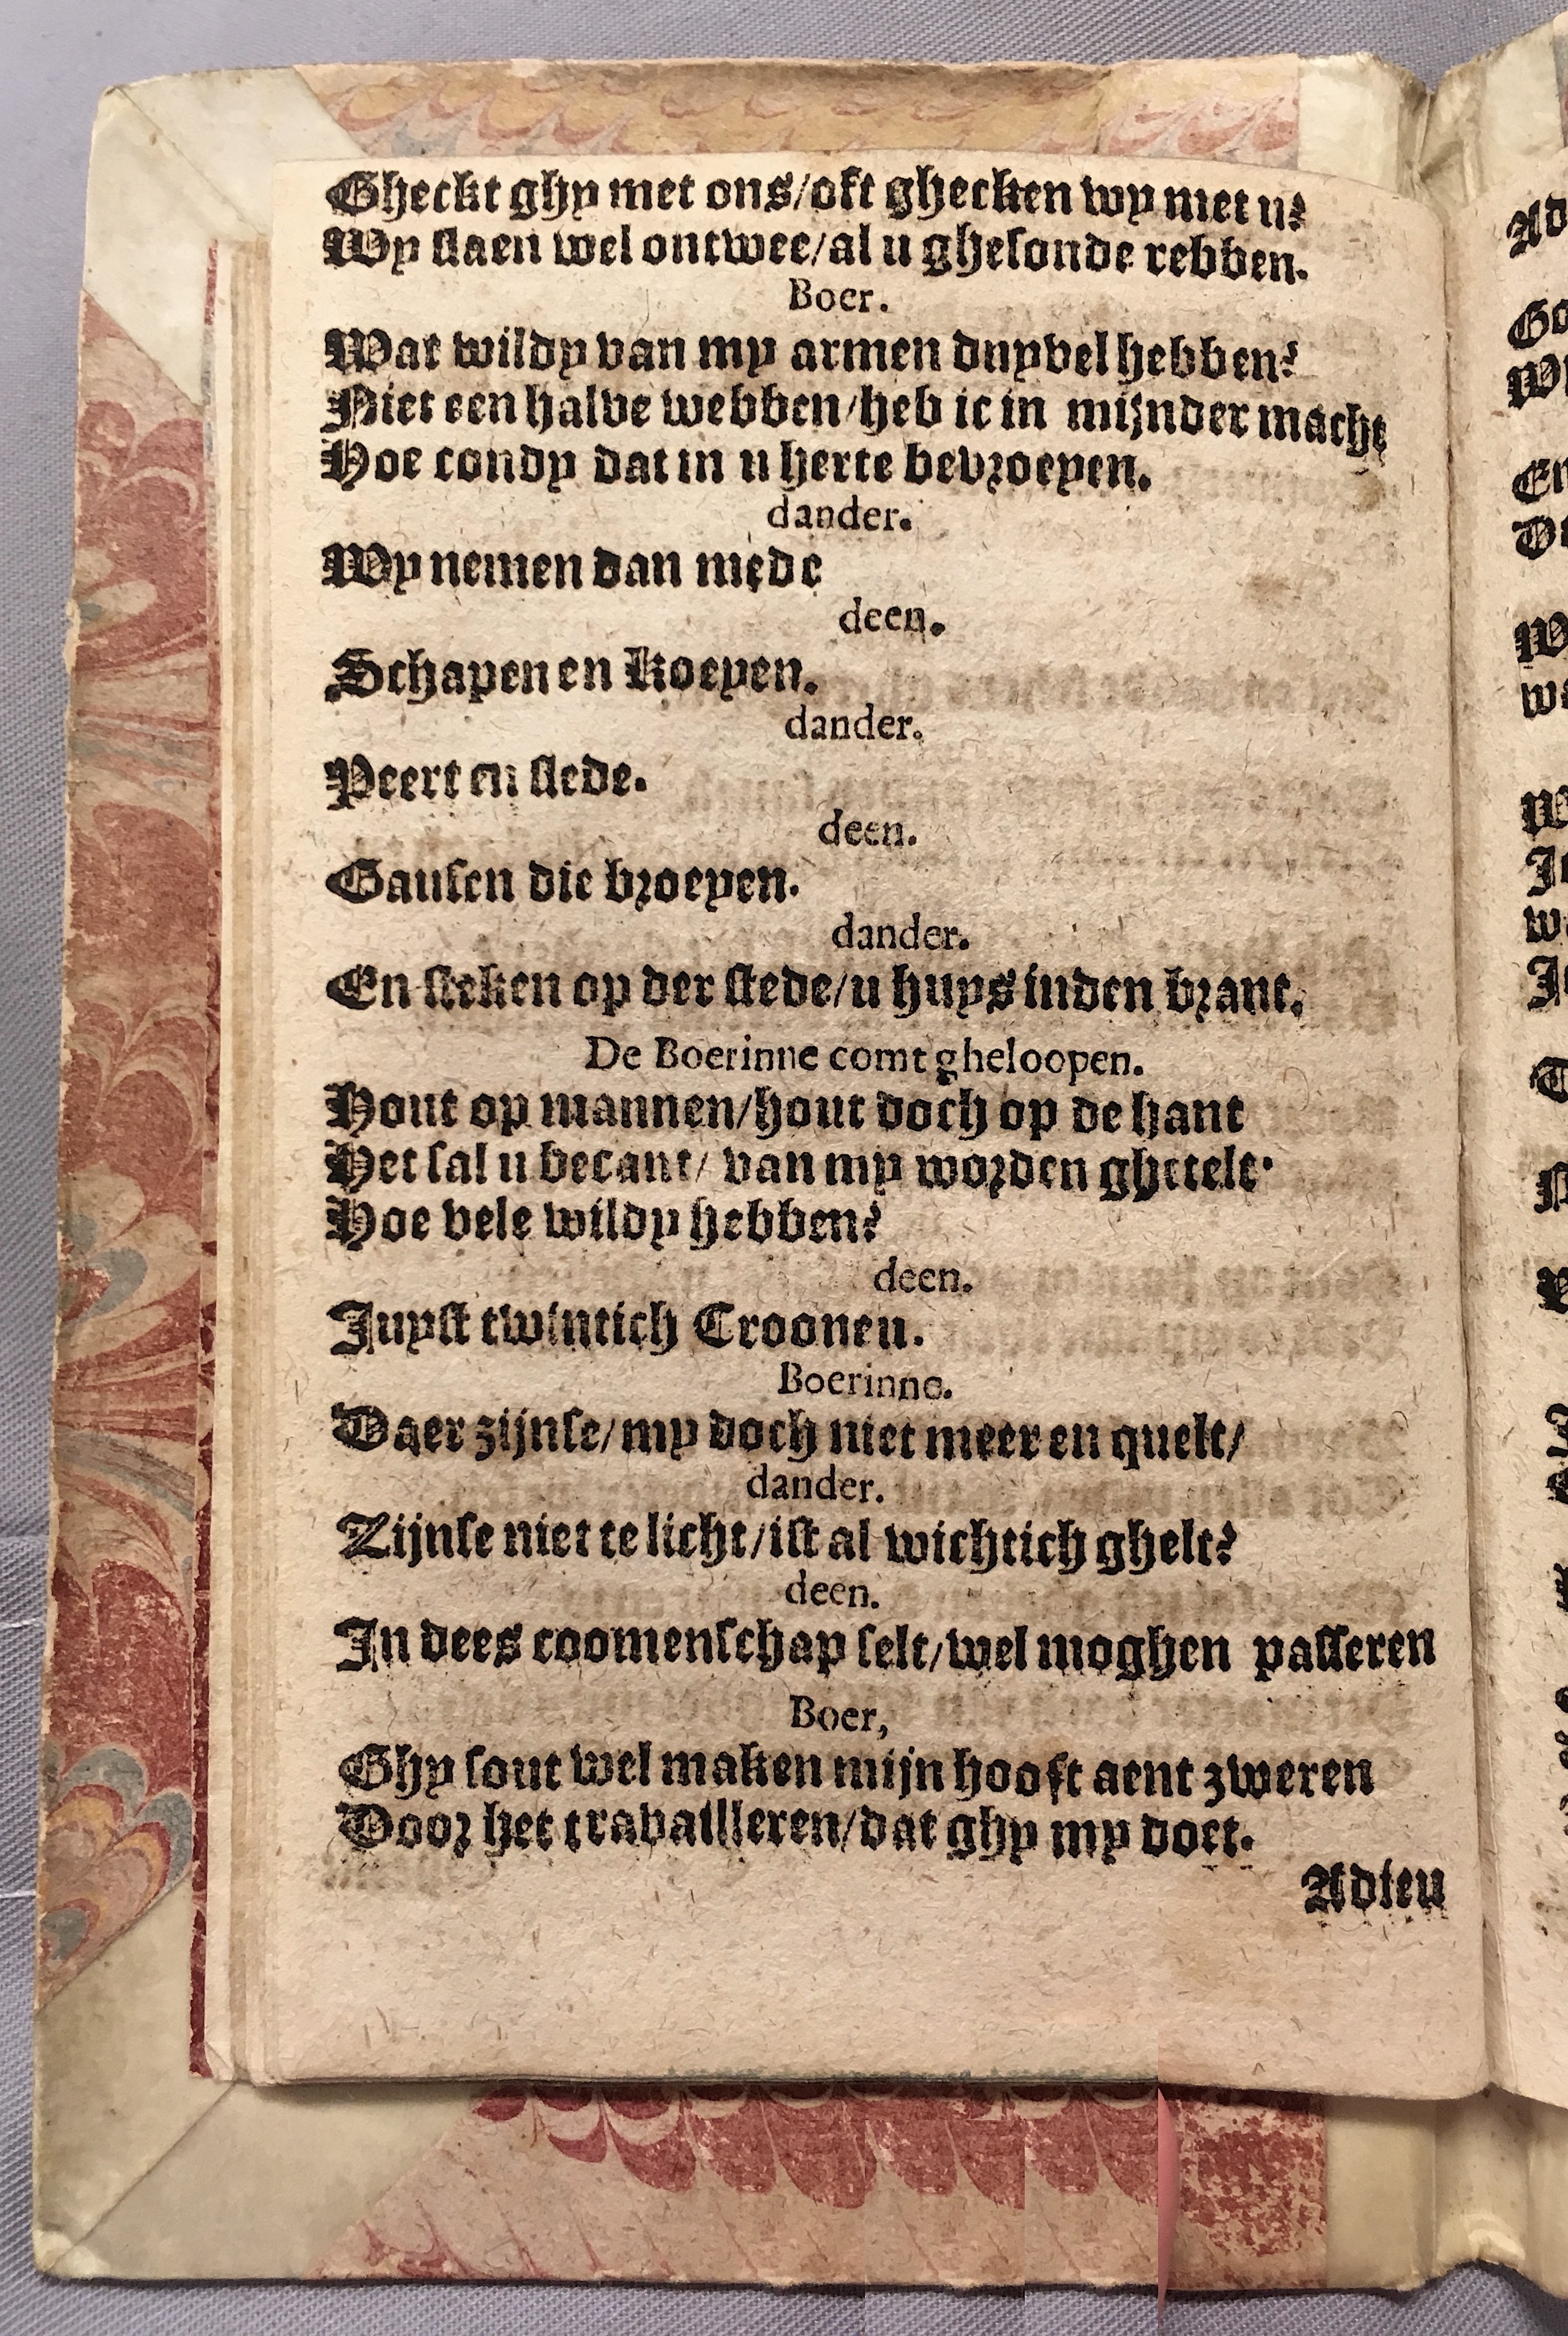 Gheckt ghy met ons/oft ghecken wy met u?
Wy slaen wel ontwee/al u ghesonde rebben.
Boer.
Wat wildy van my armen duyvel hebben?
Niet een halve webben/heb ic in mijnder macht
Hoe condy dat in u herte bevroeyen.
dander.
Wy nemen dan mede
deen.
Schapen en Koeyen.
dander.
Peert en slede.
deen.
Gansen die broeyen.
dander.
En steken op der stede/u huys inden brant.
De Boerinne comt gheloopen.
Hout op mannen/hout doch op de hant
Het sal u becant/van my worden ghetelt.
Hoe vele wildy hebben?
deen.
Juyst twintich Croonen.
Boerinne.
Daer zijnse/my doch niet meer en quelt/
dander.
Zijnse niet te licht/ist al wichtich ghelt?
deen.
In dees coomenschap selt/wel moghen passeren
Boer,
Ghy sout wel maken mijn hooft aent zweren
Door het travailleren/dat ghy my doet.
Adieu